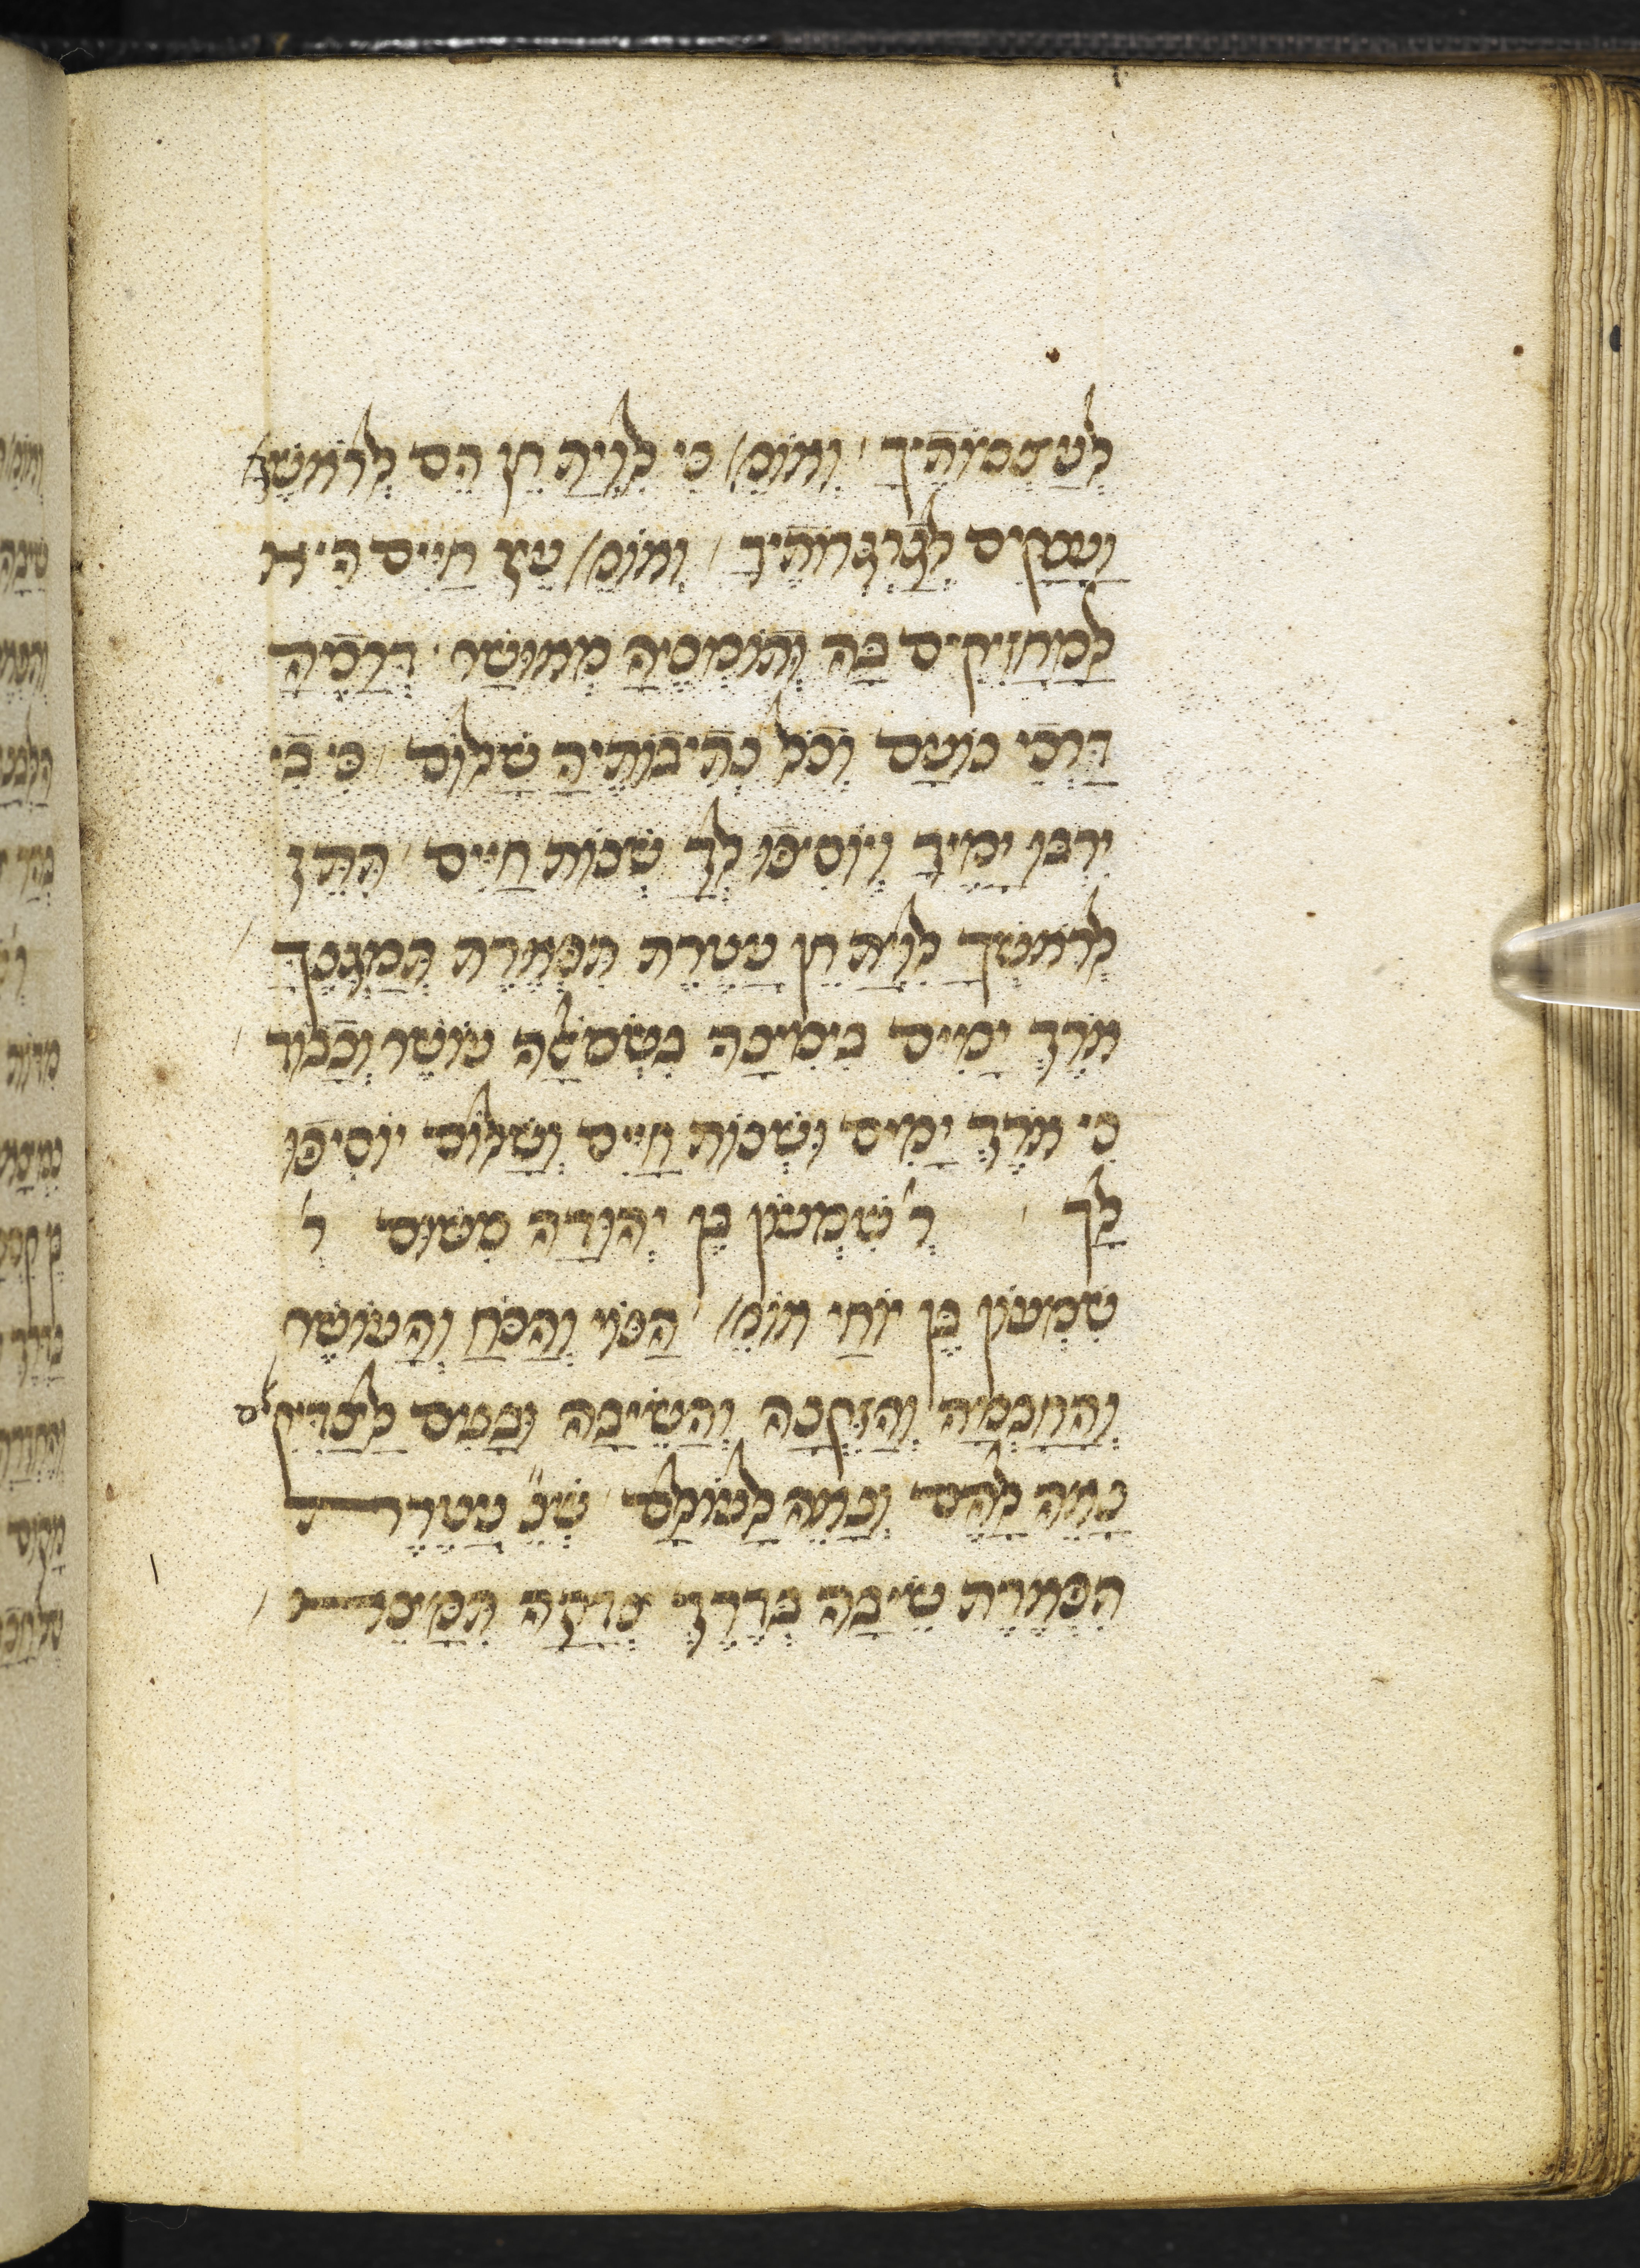 לְעַצְמוֹתֶיךָ׳ וְאוֹמֵ׳ כִּי לִוְיַת חֵן הֵם לְרֹאשֶׁךָ
וַעֲנָקִים לְגַרְגְּרוֹתֶיךָ׳ וְאוֹמֵ׳ עֵץ חַיִּים הִיא
לַמַּחֲזִיקִים בָּהּ וְתוֹמְכֶיהָ מְאוּשָּׁר׳ דְּרָכֶיהָ
דַּרְכֵי נוֹעַם וְכֹל נְתִיבוֹתֶיהָ שָׁלוֹם׳ כִּי בִי
יִרְבּוּ יָמֶיךָ וְיוֹסִיפוּ לְךָ שְׁנוֹת חַיִּים׳ תִּתֵּן
לְרֹאשְׁךָ לִוְיַת חֵן עֲטֶרֶת תִּפְאֶרֶת תְּמַגְּנֶךָּ׳
אֹרֶךְ יָמִים בִּימִינָהּ בִּשְׂמֹאלָהּ עוֹשֶׁר וְכָבוֹד׳
כִּי אֹרֶךְ יָמִים וּשְׁנוֹת חַיִּים וְשָׁלוֹם יוֹסִיפוּ
לָךְ׳ ר׳ שִׁמְעוֹן בֶּן יְהוּדָה מִשּׁוּם ר׳
שִׁמְעוֹן בֶּן יוֹחַי אוֹמֵ׳ הַנּוֹי וְהַכֹּחַ וְהָעוֹשֶׁר
וְהַחָכְמָה וְהַזִּקְנָה וְהַשֵּׂיבָה וּבָנִים לַצַּדִּיקִים
נָאֶה לָהֶם וְנָאֶה לָעוֹלָם׳ שֶׁנֶּ׳ עֲטֶרֶת
תִּפְאֶרֶת שֵׂיבָה בְּדֶרֶךְ צְדָקָה תִּמָּצֵא׳